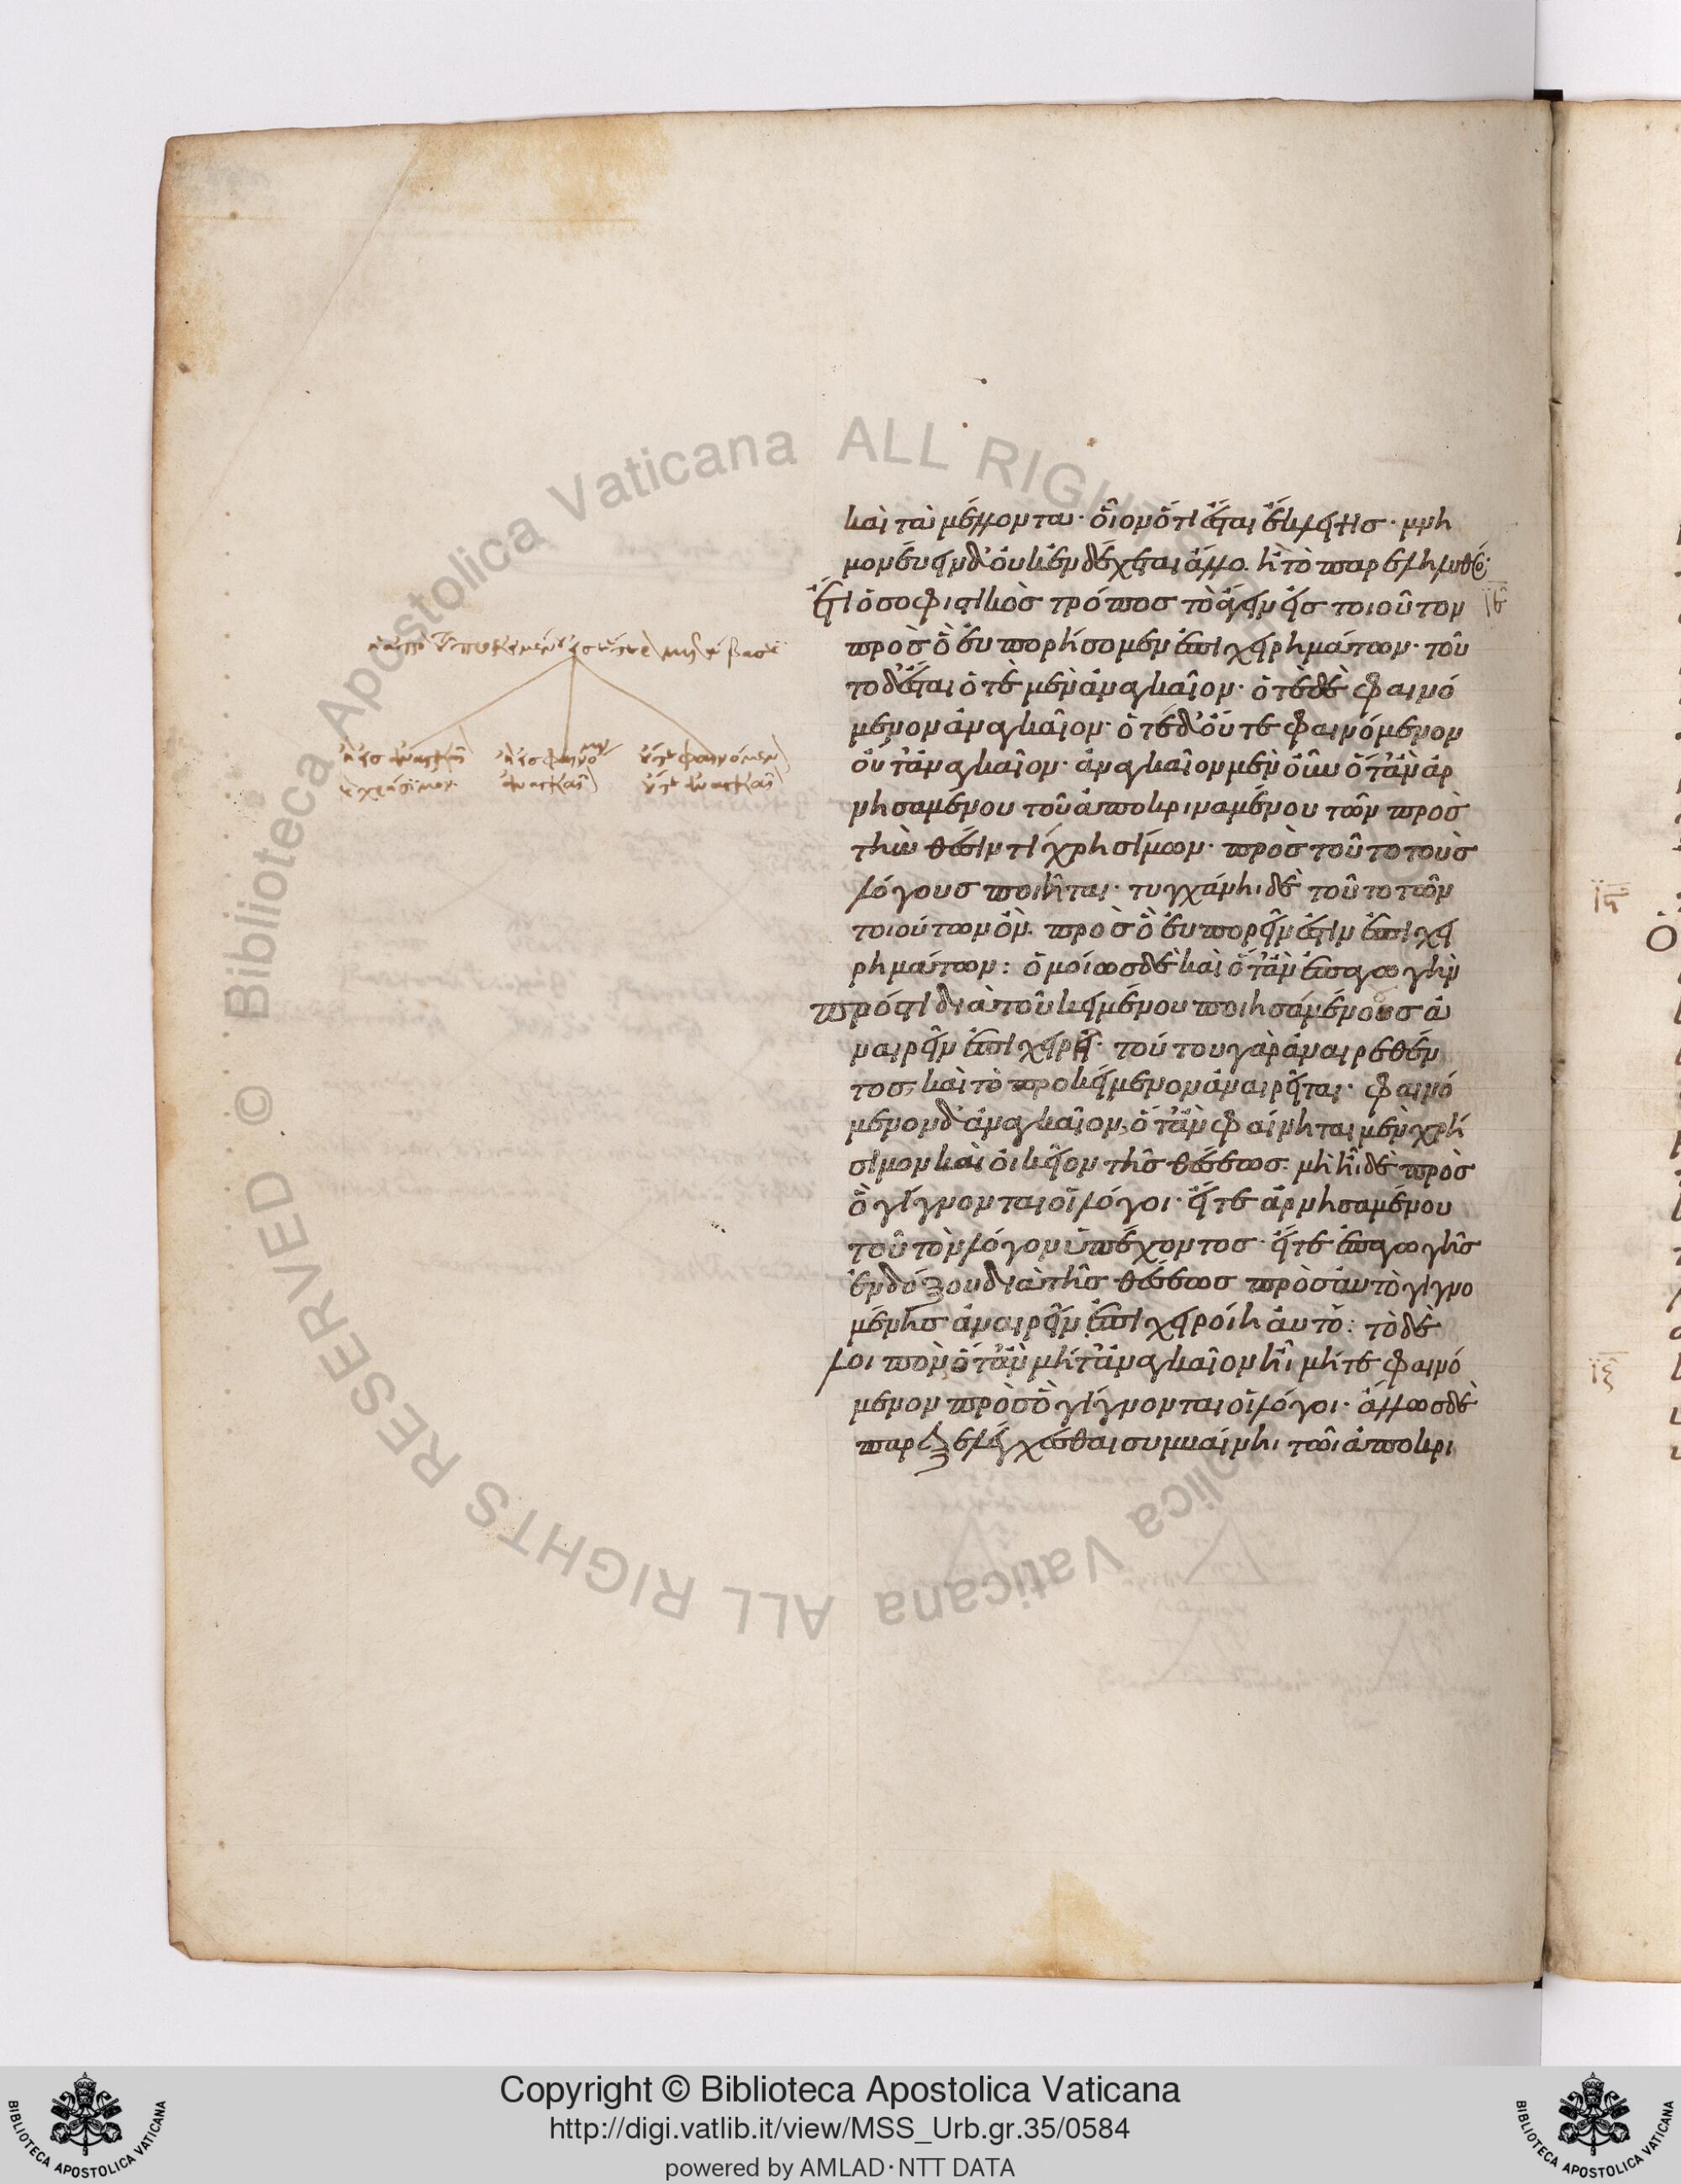 καὶ τὰ μέλλοντα· οἷον ὅτι ἔσται ἔκλειψις· μνη
μονεύειν δ' οὐκ ἐνδέχεται ἄλλο ἢ τὸ παρεληλυθός·
Ἔτι ὁ σοφιστικὸς τρόπος τὸ ἄγειν εἰς τοιοῦτον
πρὸς ὃ εὐπορήσομεν ἐπιχειρημάτων· τοῦ
το δ' ἔσται ὁτὲ μὲν ἀναγκαῖον· ὁτὲ δὲ φαινό
μενον ἀναγκαῖον· ὁτὲ δ' οὔτε φαινόμενον
οὔτ' ἀναγκαῖον· ἀναγκαῖον μὲν οὖν ὅταν ἀρ
νησαμένου τοῦ ἀποκριναμένου τῶν πρὸς
τὴν θέσιν τι χρησίμων· πρὸς τοῦτο τοὺς
λόγους ποιῆται· τυγχάνηι δὲ τοῦτο τῶν
τοιούτων ὂν πρὸς ὃ εὐπορεῖν ἔστιν ἐπιχει
ρημάτων: ὁμοίως δὲ καὶ ὅταν ἐπαγωγὴν
πρός τι διὰ τοῦ κειμένου ποιησάμενος ἀ
ναιρεῖν ἐπιχειρῆι· τούτου γὰρ ἀναιρεθέν
τος, καὶ τὸ προκείμενον ἀναιρεῖται· φαινό
μενον δ' ἀναγκαῖον, ὅταν φαίνηται μὲν χρή
σιμον καὶ οἰκεῖον τῆς θέσεως· μὴ ἦι δὲ πρὸς
ὃ γίγνονται οἱ λόγοι· εἴτε ἀρνησαμένου
τοῦ τὸν λόγον ὑπέχοντος· εἴτε ἐπαγωγῆς
ἐνδόξου διὰ τῆς θέσεως πρὸς αὐτὸ γιγνο
μένης ἀναιρεῖν ἐπιχειροίη αὐτό: τὸ δὲ
λοιπὸν ὅταν μήτ' ἀναγκαῖον ἦι μήτε φαινό
μενον πρὸς ὃ γίγνονται οἱ λόγοι· ἄλλως δὲ
παρεξελέγχεσθαι συμβαίνηι τῶι ἀποκρι
Copyright © Biblioteca Apostolica Vaticana
http://digi.vatlib.it/view/MSS_Urb.gr.35/0584
powered by AMLAD·NTT DATA